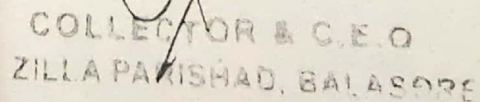 COLLECTOR & C.E.O
ZILLA PARISHAD, BALASORE